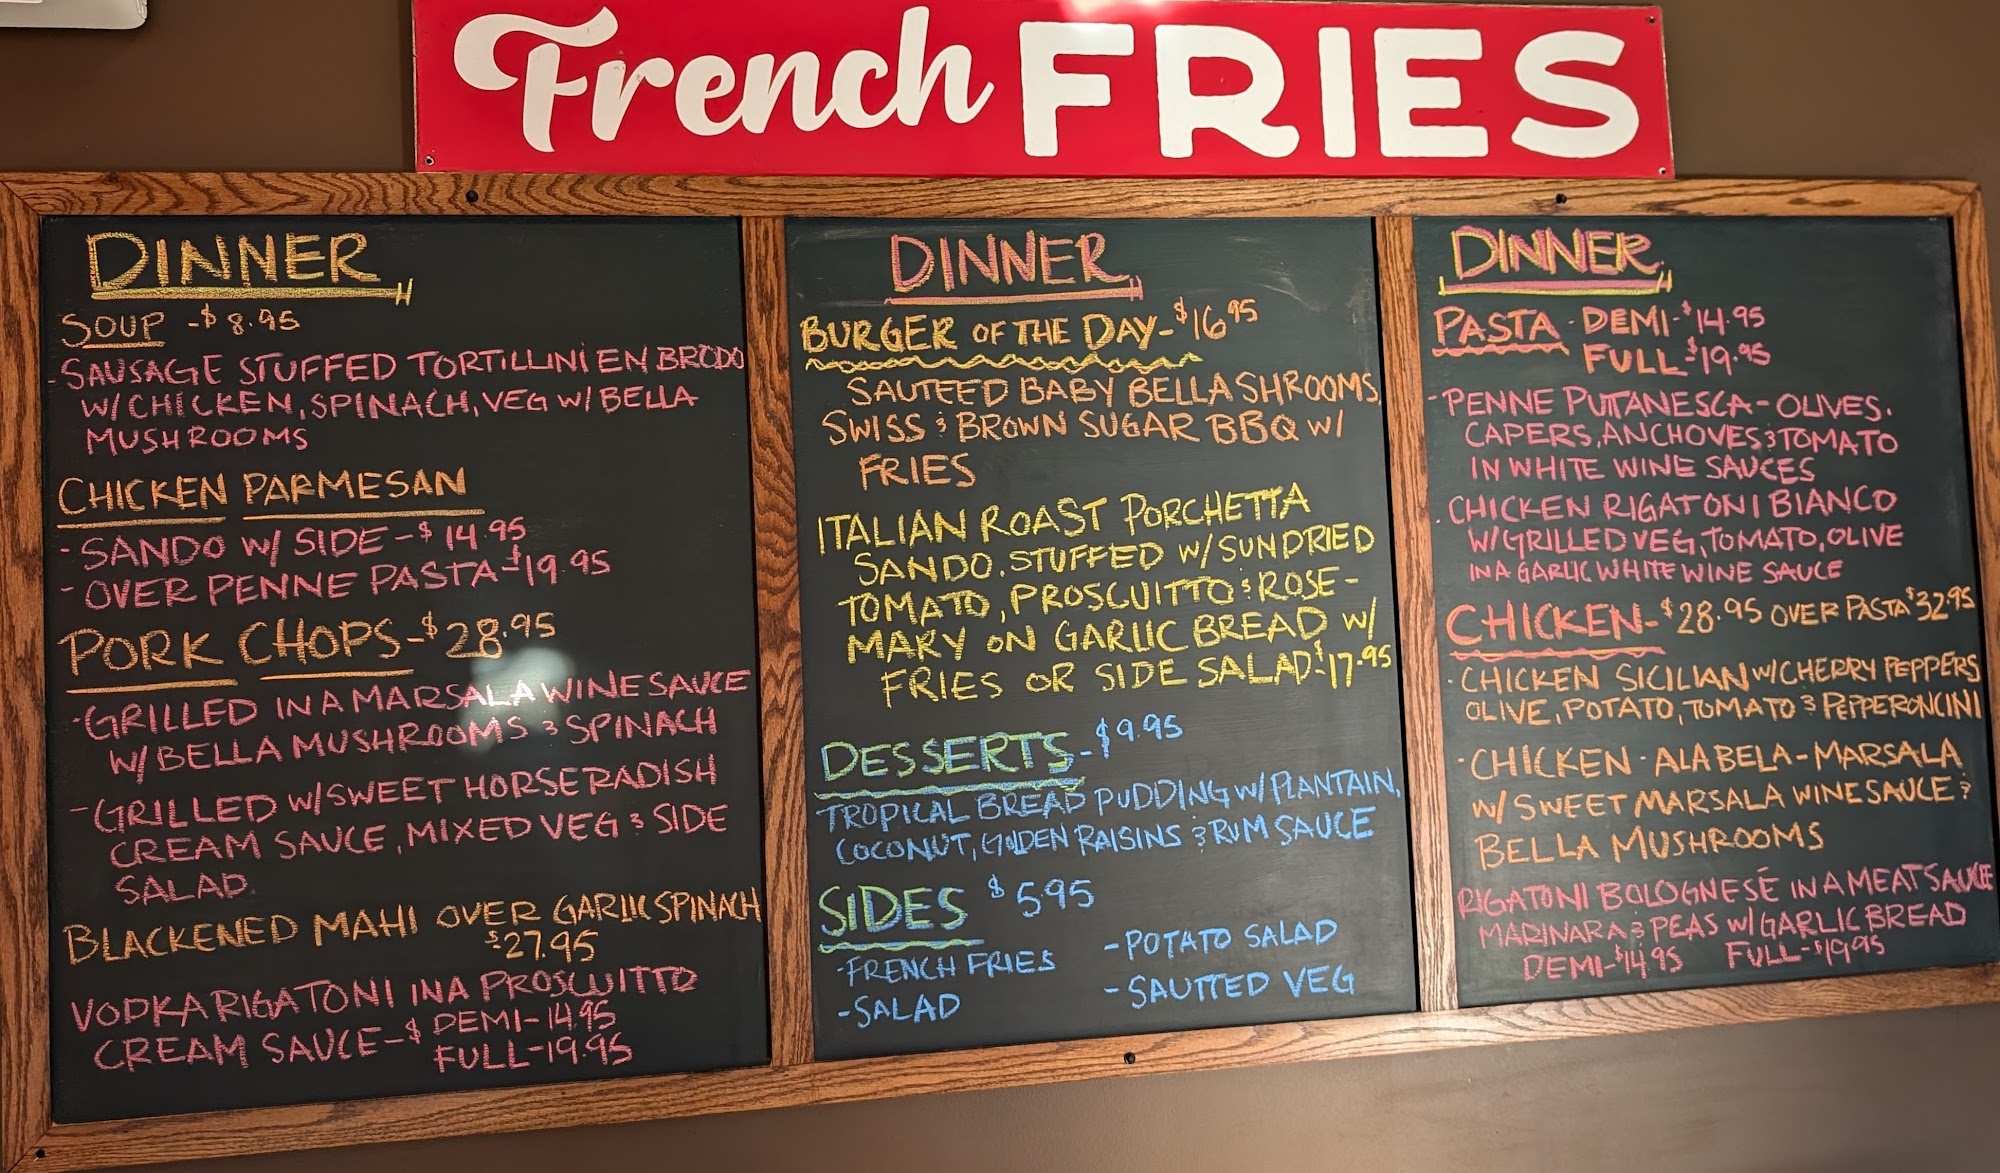 French FRIES
DINNER
SOUP - $8.95
- SAUSAGE STUFFED TORTILLINI EN BRODO
W/ CHICKEN, SPINACH, VEG W/ BELLA
MUSHROOMS
CHICKEN PARMESAN
- SANDO W/ SIDE - $14.95
- OVER PENNE PASTA - $19.95
PORK CHOPS - $28.95
- GRILLED IN A MARSALA WINE SAUCE
W/ BELLA MUSHROOMS & SPINACH
- GRILLED W/ SWEET HORSERADISH
CREAM SAUCE, MIXED VEG & SIDE
SALAD
BLACKENED MAHI OVER GARLIC SPINACH
$27.95
VODKA RIGATONI IN A PROSCUITTO
CREAM SAUCE - $ DEMI - 14.95
FULL - 19.95
DINNER
BURGER OF THE DAY - $16.95
SAUTEED BABY BELLA SHROOMS,
SWISS & BROWN SUGAR BBQ W/
FRIES
ITALIAN ROAST PORCHETTA
SANDO. STUFFED W/ SUNDRIED
TOMATO, PROSCUITTO & ROSE-
MARY ON GARLIC BREAD W/
FRIES OR SIDE SALAD - $17.95
DESSERTS - $9.95
TROPICAL BREAD PUDDING W/ PLANTAIN,
COCONUT, GOLDEN RAISINS & RUM SAUCE
SIDES $5.95
- FRENCH FRIES
- SALAD
- POTATO SALAD
- SAUTTED VEG
DINNER
PASTA - DEMI - $14.95
FULL - $19.95
- PENNE PUTTANESCA - OLIVES.
CAPERS, ANCHOVES & TOMATO
IN WHITE WINE SAUCES
. CHICKEN RIGATONI BIANCO
W/ GRILLED VEG, TOMATO, OLIVE
IN A GARLIC WHITE WINE SAUCE
CHICKEN - $28.95 OVER PASTA $32.95
. CHICKEN SICILIAN W/ CHERRY PEPPERS
OLIVE, POTATO, TOMATO & PEPPERONCINI
. CHICKEN - ALA BELA - MARSALA
W/ SWEET MARSALA WINE SAUCE &
BELLA MUSHROOMS
RIGATONI BOLOGNESÉ IN A MEAT SAUCE
MARINARA & PEAS W/ GARLIC BREAD
DEMI - $14.95 FULL - $19.95